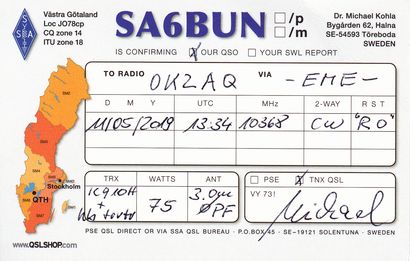 Västra Götaland
Loc JO78cp
CQ zone 14
ITU zone 18
SSA
SA6BUN
/p
/m
Dr. Michael Kohla
Bygården 62, Halna
SE-54593 Töreboda
SWEDEN
IS CONFIRMING X OUR QSO YOUR SWL REPORT
TO RADIO OK2AQ VIA - EME -
D M Y UTC MHz 2-WAY R S T
11/05/2019 13:34 10368 CW "RO"
TRX WATTS ANT
IC910H + 75 3.0m
PF
PSE X TNX QSL
VY 73!
Michael
Stockholm
QTH
www.QSLSHOP.com
PSE QSL DIRECT OR VIA SSA QSL BUREAU - P.O.BOX 45 - SE-19121 SOLENTUNA - SWEDEN